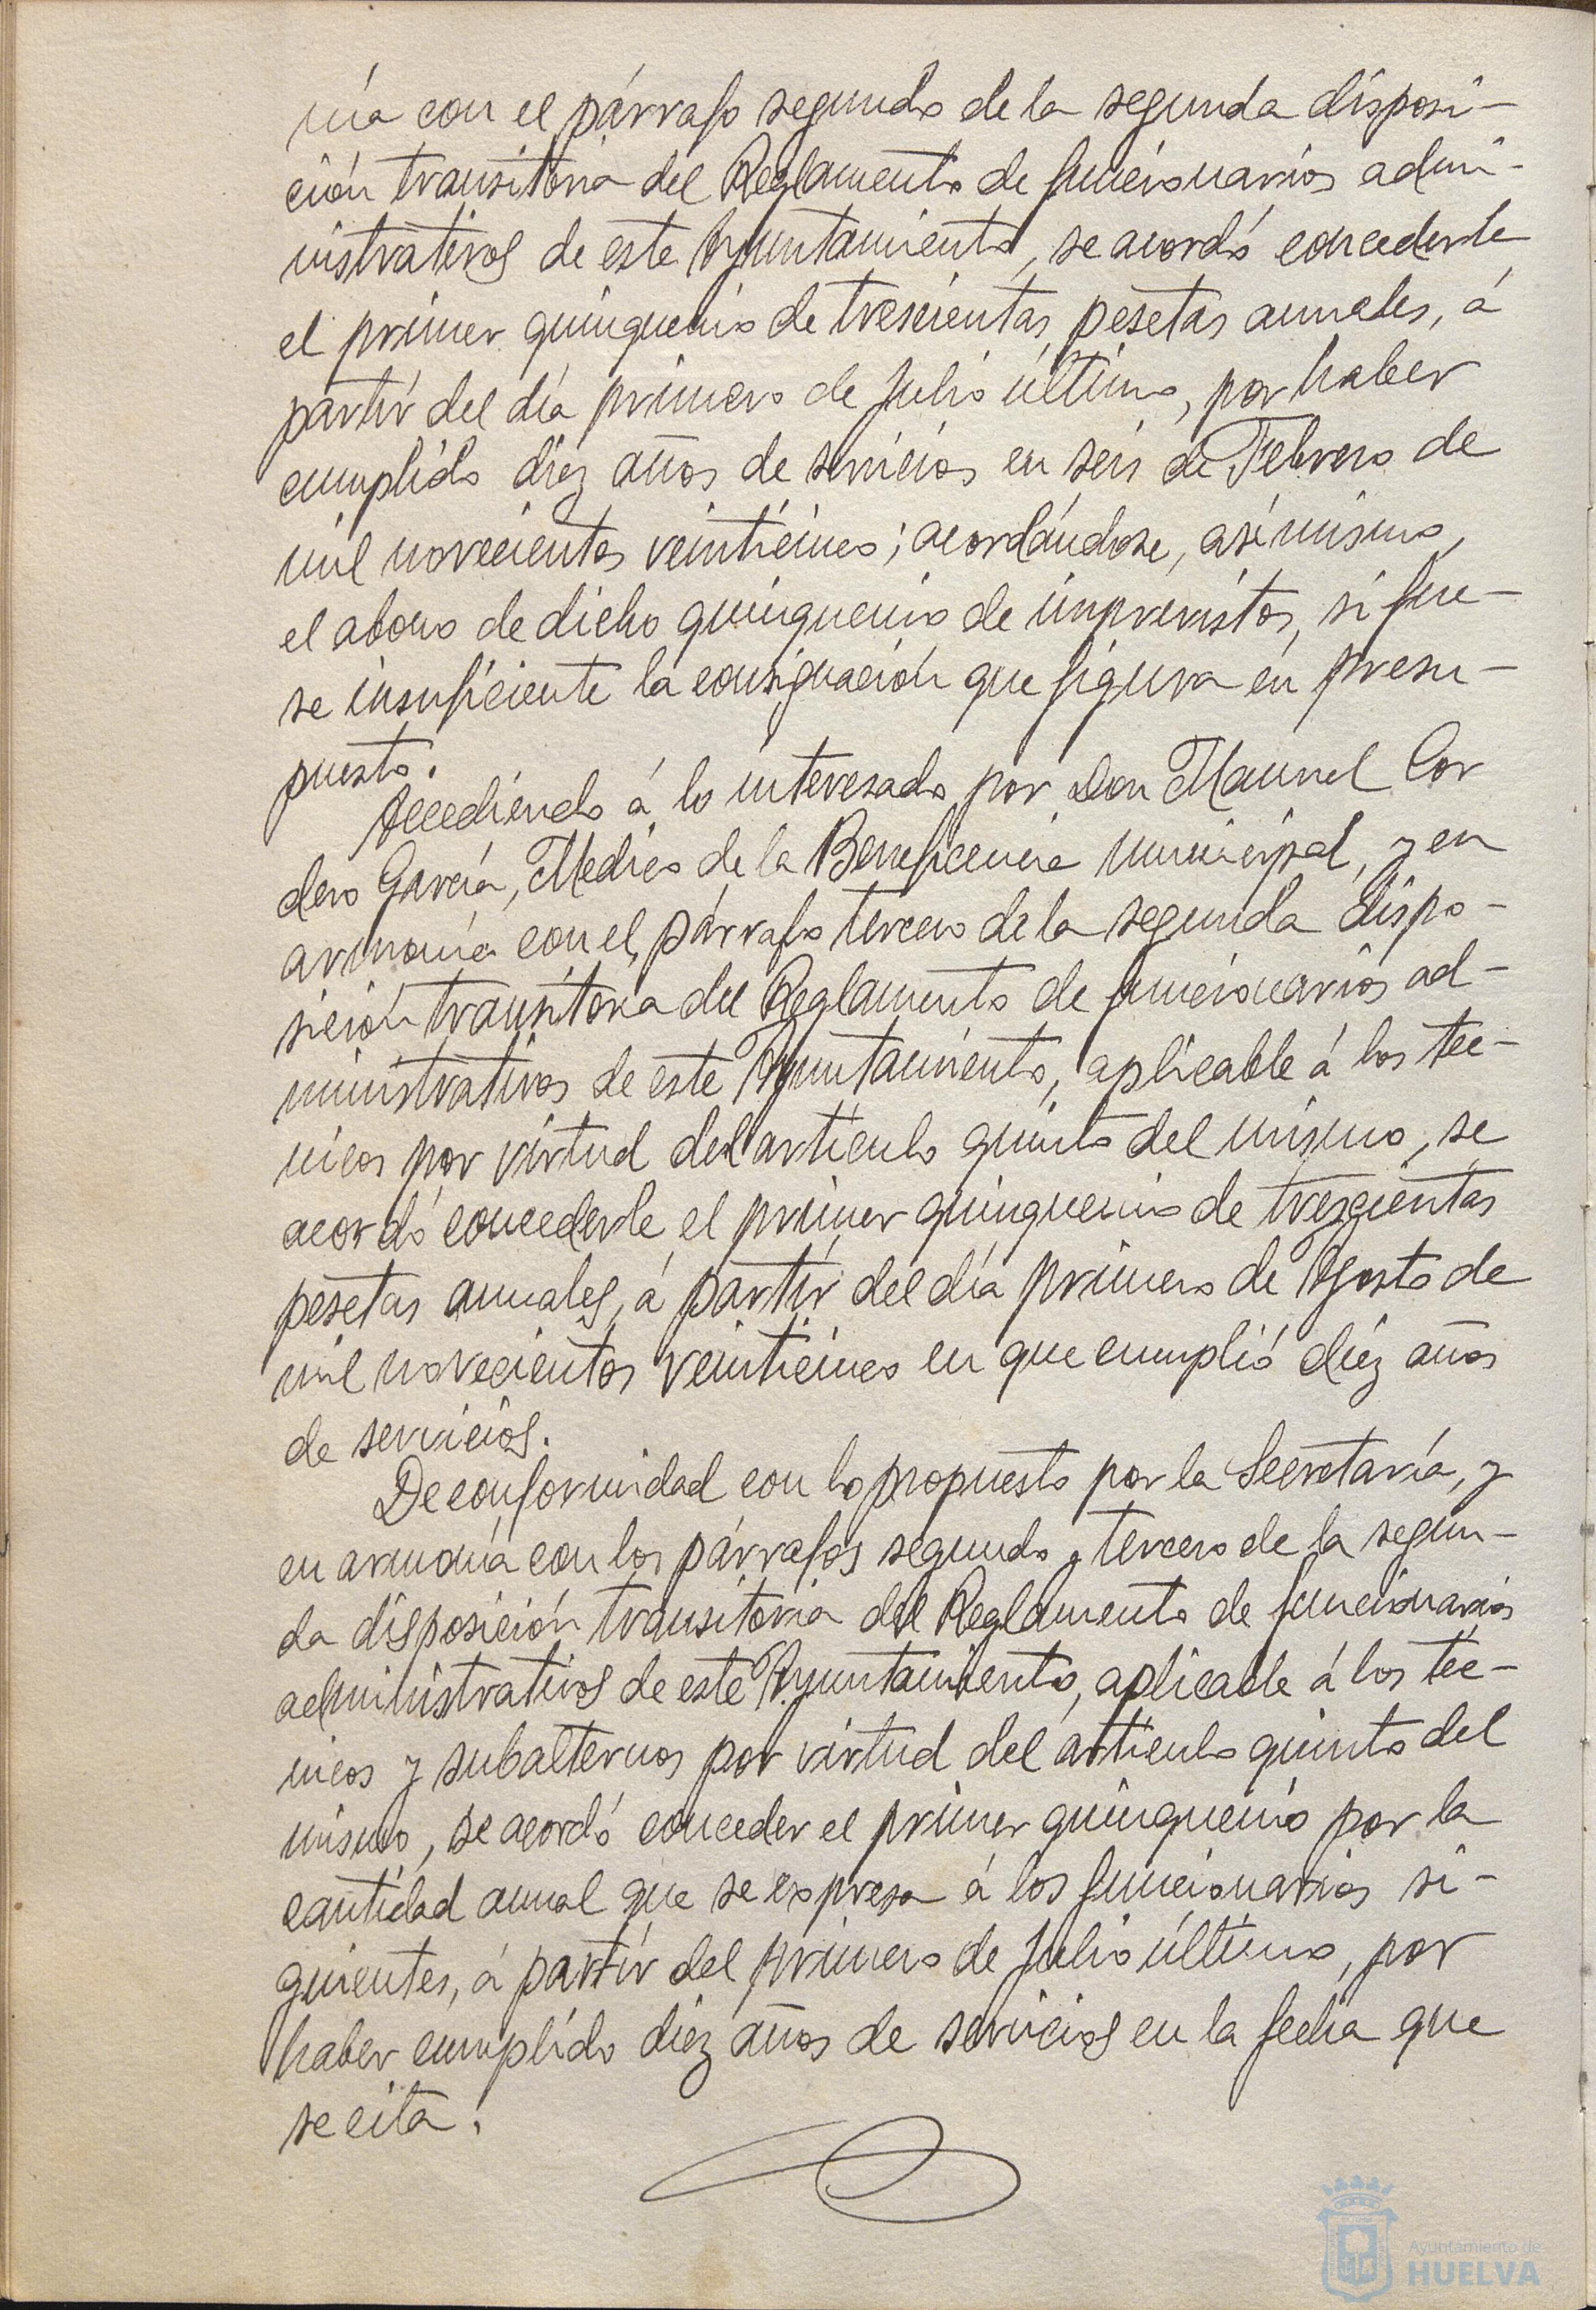 nía con el párrafo segundo de la segunda disposi-
ción transitoria del Reglamento de funcionarios admi-
nistrativos de este Ayuntamiento, se acordó concederle
el primer quinquenio de trescientas pesetas anuales, á
partir del día primero de Julio último, por haber
cumplido diez años de servicios en seis de Febrero de
mil novecientos veinticinco; acordándose, asímismo,
el abono de dicho quinquenio de imprevistos, si fue-
se insuficiente la consignación que figura en presu-
puesto.
Accediendo á lo interesado por Don Manuel Cor
dero García, Médico de la Beneficencia municipal, y en
armonía con el párrafo tercero de la segunda dispo-
sición transitoria del Reglamento de funcionarios ad-
ministrativos de este Ayuntamiento, aplicable á los téc-
nicos por virtud del artículo quinto del mismo, se
acordó concederle el primer quinquenio de trescientas
pesetas anuales, á partir del día primero de Agosto de
mil novecientos veinticinco en que cumplió diez años
de servicios.
De conformidad con lo propuesto por la Secretaría, y
en armonía con los párrafos segundo y tercero de la segun-
da disposición transitoria del Reglamento de funcionarios
administrativos de este Ayuntamiento, aplicable á los téc-
nicos y subalternos por virtud del artículo quinto del
mismo, se acordó conceder el primer quinquenio por la
cantidad anual que se expresa á los funcionarios si-
guientes, á partir del primero de Julio último, por
haber cumplido diez años de servicios en la fecha que
se cita.
Ayuntamiento de
HUELVA